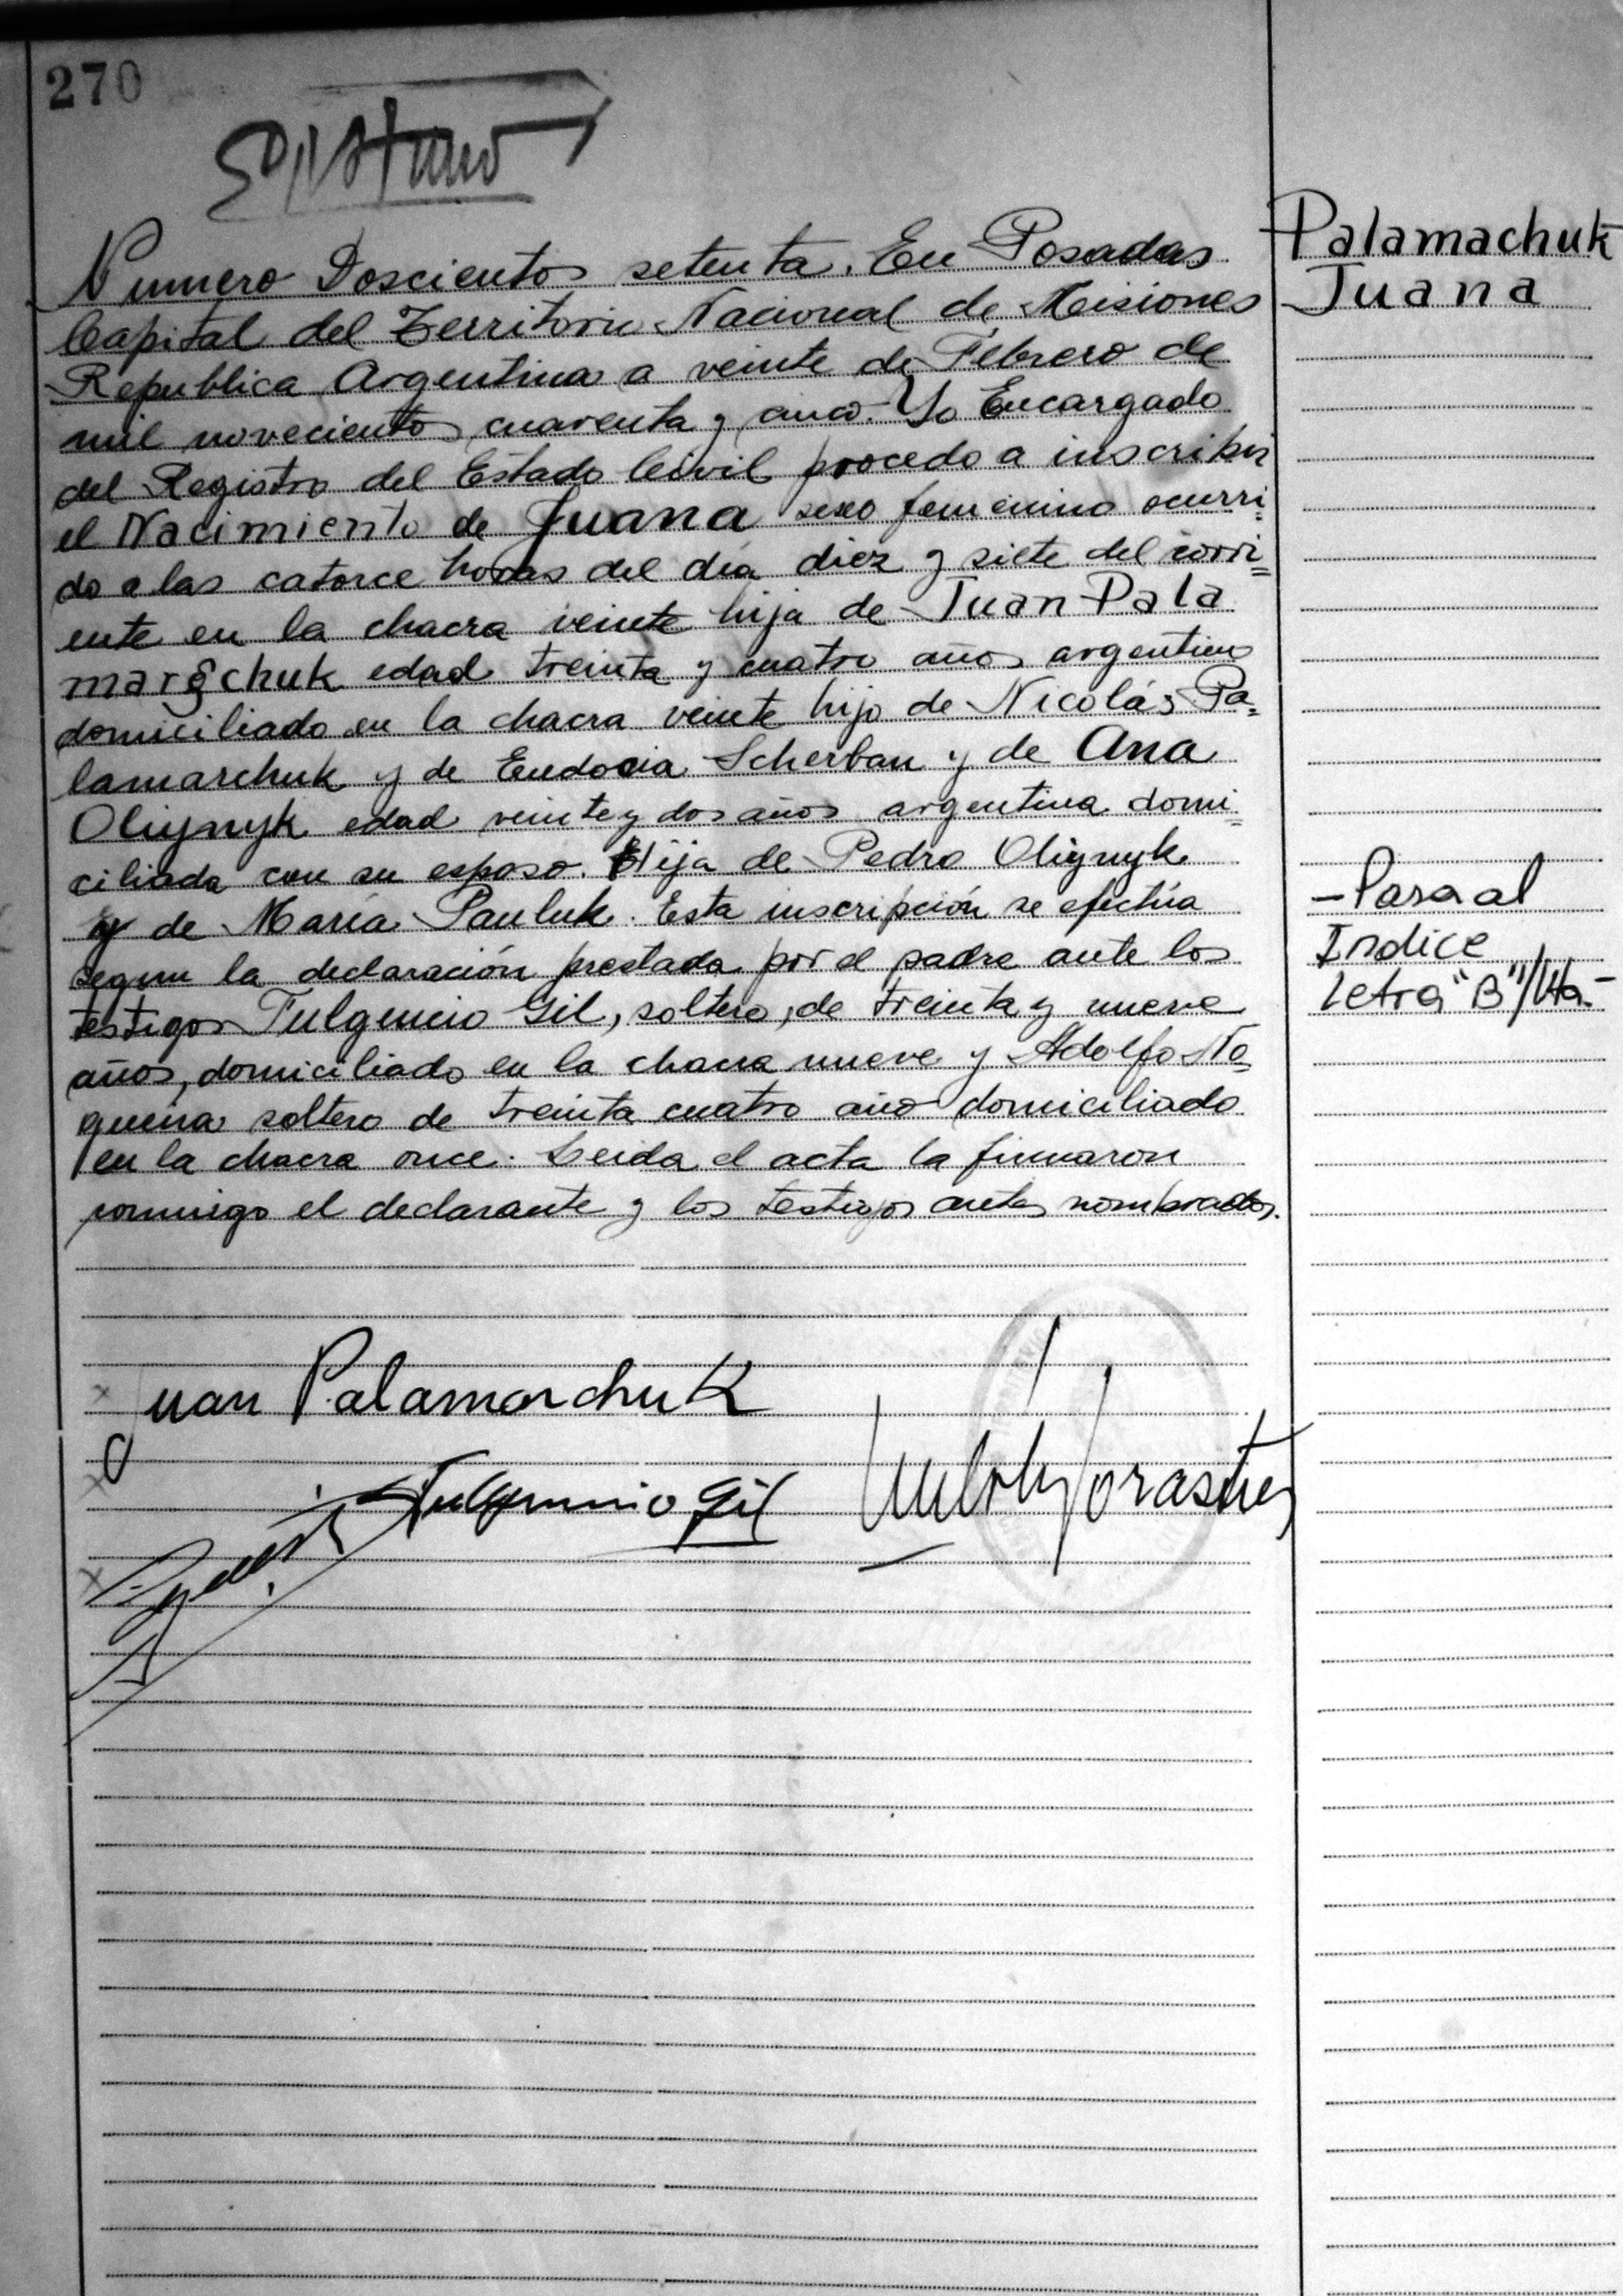 270
Numero Doscientos setenta. En Posadas
Capital del Territorio Nacional de Misiones
Republica Argentina a veinte de Febrero de
mil novecientos cuarenta y cinco. Yo Encargado
del Registro del Estado Civil procedo a inscribir
el Nacimiento de Juana sexo femenino ocurri=
do a las catorce horas del día diez y siete del corri=
ente en la chacra veinte hija de Juan Pala
marchuk edad treinta y cuatro años argentino
domiciliado en la chacra veinte hijo de Nicolás Pa=
lamarchuk y de Eudocia Scherban y de Ana
Oliynyk edad veinte y dos años argentina domi=
ciliada con su esposo. Hija de Pedro Oliynyk
y de María Pauluk. Esta inscripción se efectúa
segun la declaración prestada por el padre ante los
testigos Fulgencio Gil, soltero, de treinta y nueve
años, domiciliado en la chacra nueve y Adolfo No=
guera soltero de treinta cuatro año domiciliado
en la chacra once. Leida el acta la firmaron
conmigo el declarante y los testigos antes nombrados.
Palamachuk
Juana
- Pasa al
Indice
Letra "B"/Vta.-
Juan Palamarchuk
Fulgencio Gil